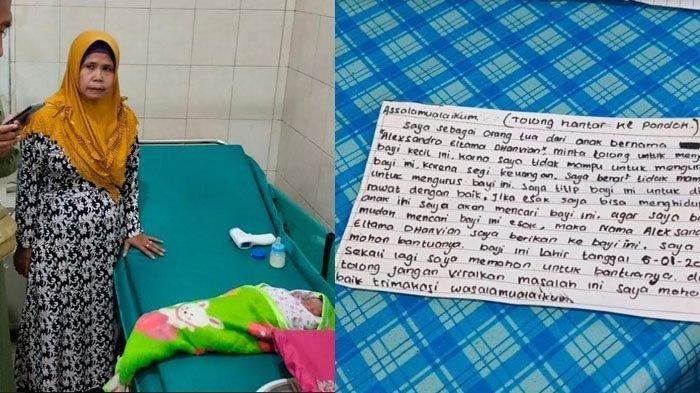 Assalamualaikum (Tolong hantar ke Pondok)
Saya sebagai orang tua dari anak bernama
"Alexsandro Eltama Dhanvian" minta tolong untuk
bayi kecil ini, karna saya tidak mampu untuk
bayi mi, karena segi keuangan, saya berat tidak
untuk mengurus bayi ini. Saya titip bayi mi untuk di
rawat dengan baik, Jika esok saya bisa
anak ini saya akan mencari bayi ini. agar saya
mudah mencari bayi mi esok, maka Nama
Eltama Dhanvian saya berikan ke bayi ini. saya
mohon bantuanya, bayi ini lahir tanggal 6-01-
Sekali lagi saya memohon untuk bantuanya,
tolong jangan viralkan masalah ini saya
baik trimakasi wasalamualaikum